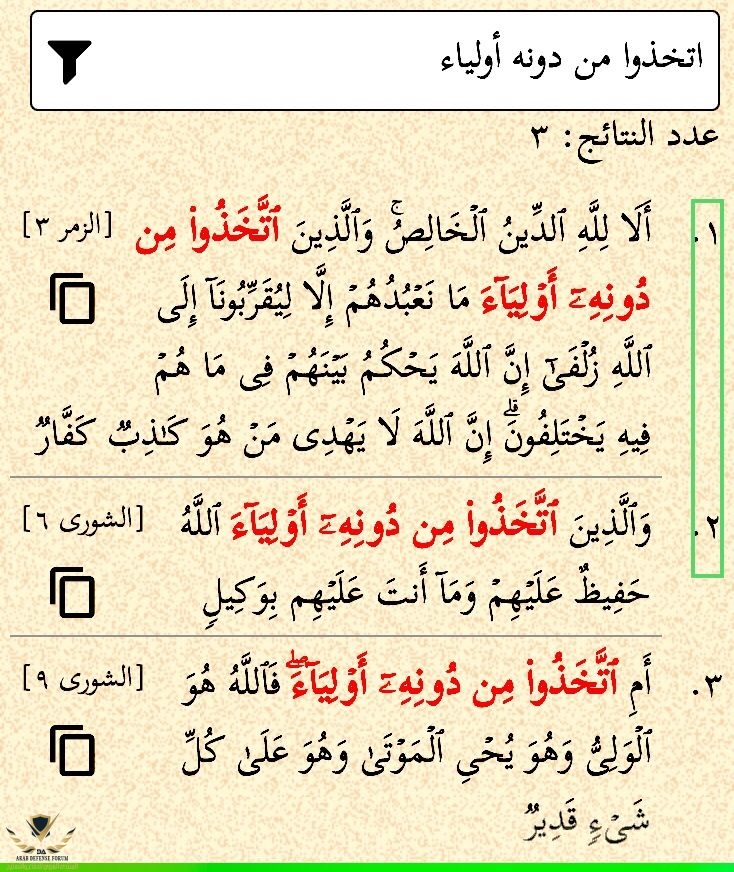 اتخذوا من دونه أولياء
عدد النتائج: ٣
١. أَلَا لِلَّهِ ٱلدِّينُ ٱلْخَالِصُۚ وَٱلَّذِينَ ٱتَّخَذُوا۟ مِن [الزمر ٣]
دُونِهِۦٓ أَوْلِيَآءَ مَا نَعْبُدُهُمْ إِلَّا لِيُقَرِّبُونَآ إِلَى
ٱللَّهِ زُلْفَىٰٓ إِنَّ ٱللَّهَ يَحْكُمُ بَيْنَهُمْ فِى مَا هُمْ
فِيهِ يَخْتَلِفُونَۗ إِنَّ ٱللَّهَ لَا يَهْدِى مَنْ هُوَ كَـٰذِبٌ كَفَّارٌ
٢. وَٱلَّذِينَ ٱتَّخَذُوا۟ مِن دُونِهِۦٓ أَوْلِيَآءَ ٱللَّهُ [الشورى ٦]
حَفِيظٌ عَلَيْهِمْ وَمَآ أَنتَ عَلَيْهِم بِوَكِيلٍ
٣. أَمِ ٱتَّخَذُوا۟ مِن دُونِهِۦٓ أَوْلِيَآءَۖ فَٱللَّهُ هُوَ [الشورى ٩]
ٱلْوَلِىُّ وَهُوَ يُحْىِ ٱلْمَوْتَىٰ وَهُوَ عَلَىٰ كُلِّ
شَىْءٍ قَدِيرٌ
DA
ARAB DEFENSE FORUM